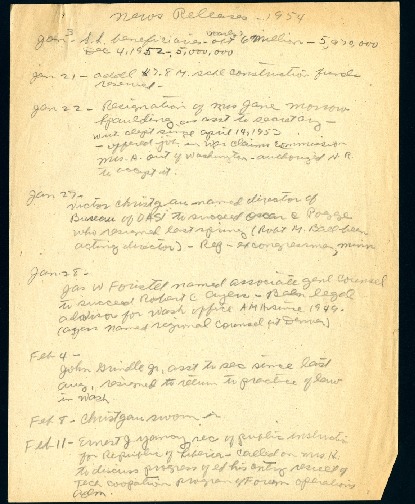 News Releases - 1954
Jan 3 - S.S. beneficiaries - nearly 6 million - 5,970,000
Dec 4, 1952, 5,000,000
Jan 21 - addtl $7.8 M. schl construction funds
reserved -
Jan 22 - Resignation of Mrs Jane Morrow
Spaulding as asst to secretary -
with dept since april 14, 1953
- offered job in War Claims Commission
Mrs. H. out of Washington - authorized N.R.
to accept it.
Jan 27 -
Victor Christgau named director of
Bureau of OASI to succeed Oscar C Pogge
who resigned last spring (
acting director) - Rep - ex congressman, Minn
Jan 28 -
Jas W Foristel named associate genl counsel
to succeed Robert C Ayers - Been legal
advisor for Wash office AMA since 1949.
(Ayers named regional counsel at Denver)
Feb 4 -
John Grindle Jr, asst to sec since last
Aug, resigned to return to practice of law
in Wash.
Feb 8 - Christgau sworn in
Feb 11 - Ernest J Yancy, sec of public instructi
for Republic of Liberia - called on Mrs H.
to discuss progress of his cntry result of
Tech cooperation program of Foreign operations
adm.